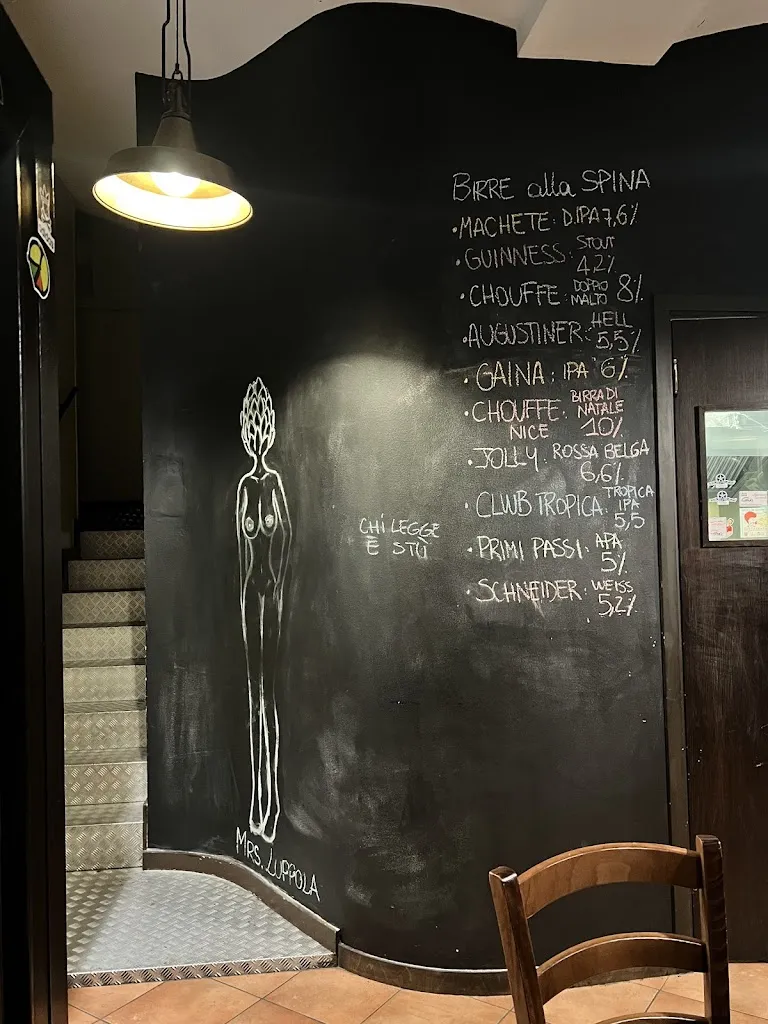 BIRRE alla SPINA
• MACHETE: D.IPA 7,6%
• GUINNESS: STOUT 4,2%
• CHOUFFE: DOPPIO MALTO 8%
• AUGUSTINER: HELL 5,5%
• GAINA: IPA 6%
• CHOUFFE NICE BIRRA DI NATALE 10%
• JOLLY: ROSSA BELGA 6,6%
• CLWB TROPICA: TROPICA IPA 5,5
• PRIMI PASSI: APA 5%
• SCHNEIDER: WEISS 5,2%
CHI LEGGE
È STÙ
MRS. LUPPOLA